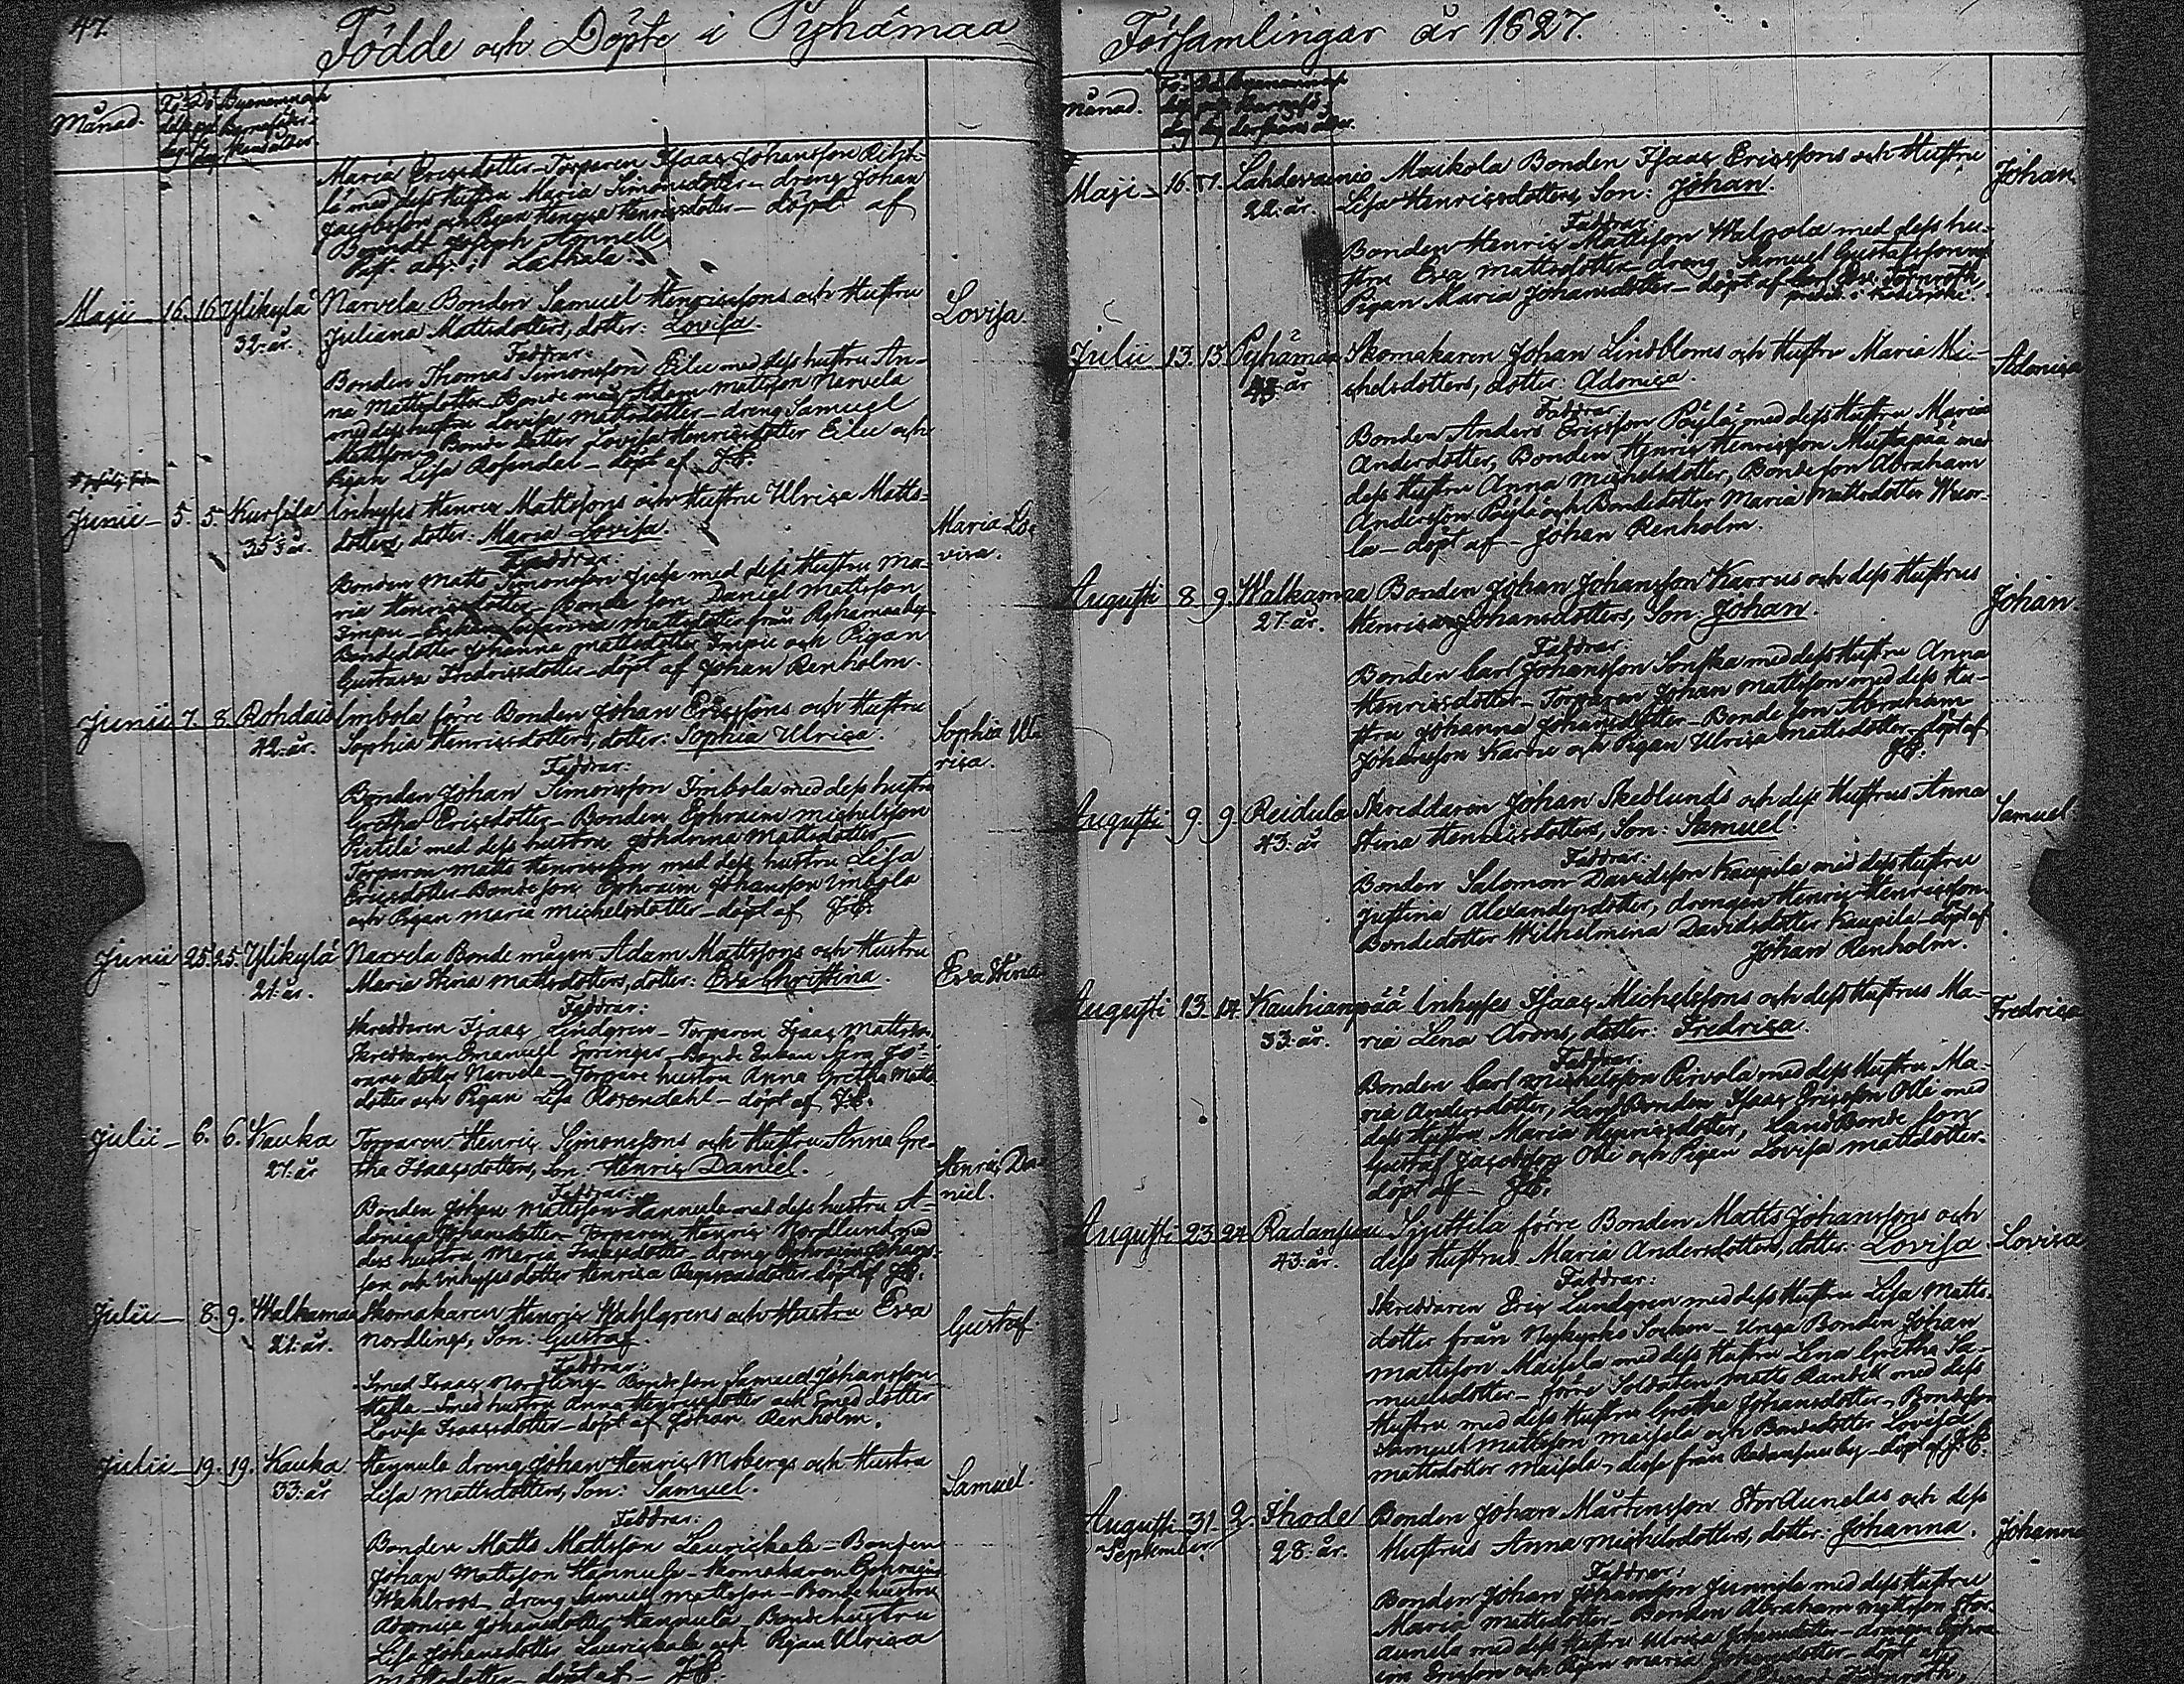 47.
Födde och Döpte i Pyhämaa
Månad.
Maria Ericsdotter - Torparen Isaac Johansson
med dess Hustru Maria Simonsdotter - dreng Johan
Jacobsson och Pigan Henricsdotter - döpt af
Joseph Annell
Maji 16. 16 Ylikylä Narvela Bonden Samuel Henricssons och Hustru
32. år. Juliana Mattsdotters, dotter: Lovisa.
Lovisa
Faddrar:
Bonden Thomas Simonsson Eilu med dess hustru An-
na Mattsdotter - Bonde måg Adam Mattsson Narvela
med dess hustru Lovisa Mattsdotter - dreng Samuel
Mattsson, Bonde dotter Lovisa Henricsdotter Eilu och
Pigan Lisa Rosendal - döpt af J.R.
Junii 5. 5. Kursila Inhyses Henric Mattssons och Hustru Ulrica Matts-
35 år. dotters, dotter: Maria Lovisa.
Maria Lo-
visa.
Faddrar:
Bonden Matts Simonsson med dess Hustru Ma-
ria Henricsdotter - Bonde son Daniel Mattsson
Impu - Enkan Johanna Mattsdotter från Pyhämaa by -
Bondedotter Johanna Mattsdotter Impu och Pigan
Gustava Fredricsdotter - döpt af Johan Renholm.
Junii 7. 8. Rohdais Imbola förre Bonden Johan Ericssons och Hustru
42. år. Sophia Henricsdotters, dotter: Sophia Ulrica.
Sophia Ul-
rica.
Faddrar:
Bonden Johan Simonsson Imbola med dess hustru
Gretha Ericsdotter - Bonden Ephraim Michelsson
Pietilä med dess hustru Johanna Mattsdotter
Torparen Matts Henricsson med dess hustru Lisa
Ericsdotter - Bondeson Ephraim Johansson Imbola
och Pigan Maria Michelsdotter - döpt af J.R.
Junii 25 25. Ylikylä Narvela Bonde mågen Adam Mattssons och Hustru
21. år. Maria Stina Mattsdotters, dotter: Eva Christina.
Eva Stina
Faddrar:
Skreddaren Isaac Lindgren - Torparen Isaac Mattsson
Skreddaren Emanuel Springer - Bonde Enkan
dotter Narvela - Torpare hustru Anna Gretha Matts-
dotter och Pigan Lisa Rosendahl - döpt af J.R.
Julii 6. 6. Kauka Torparen Henric Simonssons och Hustru Anna Gre-
27. år tha Isaacsdotters, son: Henric Daniel.
Henric Da-
niel.
Faddrar:
Bonden Johan Mattsson Hannula med dess hustru A-
donica Johansdotter - Torparen Henric Nordlund med
dess hustru Maria Isaacsdotter - dreng Ephraim Johans-
son och Inhyses dotter Henrica döpt af J.R.
Julii 8. 9. Walkamaa Skomakaren Henric Wahlgrens och Hustru Eva
21. år. Nordlings, Son: Gustaf
Gustaf
Faddrar:
Smed Isaac Nordling - Bondeson Samuel Johansson
Smed hustru Anna Henricsdotter och Smed dotter
Lovisa Isaacsdotter - döpt af Johan Renholm.
Julii 19. 19. Kauka Hannula dreng Johan Henric Mobergs och Hustru
33. år Lisa Mattsdotters, Son: Samuel.
Samuel.
Faddrar:
Bonden Matts Mattsson Laurickala - Bonden
Johan Mattsson Hannula - Skomakaren Ephraim
Wahlroos - dreng Samuel Mattsson - Bonde hustru
Adonica Johansdotter Hannula, Bonde hustru
Lisa Johansdotter Laurickala och Pigan Ulrica
Mattsdotter - döpt af - J.R.
Församlingar år 1827.
Månad.
Maji 16. 17. Lahdevainio Maikola Bonden Isaac Ericssons och Hustru
22. år. Lisa Henricsdotters, Son: Johan.
Johan
Faddrar:
Bonden Henric Mattsson Walpola med dess hu-
stru Eva Mattsdotter - dreng Samuel Gustafsson
Pigan Maria Johansdotter - döpt af
Julii 13. 15 Pyhämaa Skomakaren Johan Lindbloms och Hustru Maria Mi-
år chelsdotters, dotter: Adonica.
Adonica
Faddrar:
Bonden Anders Ericsson Pöylä, med dess Hustru Maria
Andersdotter, Bonden Henric Henricsson Mustapää med
dess Hustru Anna Michelsdotter, Bondeson Abraham
Andersson Pöylä och Bondedotter Maria Mattsdotter
la - döpt af - Johan Renholm.
Augusti 8. 9. Walkamaa Bonden Johan Johansson Karrus och dess Hustrus
27. år. Henrica Johansdotters, Son: Johan
Johan.
Faddrar.
Bonden Carl Johansson Sonska med dess Hustru Anna
Henricsdotter - Torparen Johan Mattsson med dess Hu-
stru Johanna Johansdotter - Bonde son Abraham
Johansson Karru och Pigan Ulrica Mattsdotter - döpt af
J.R.
Augusti 9. 9. Reidula Skreddaren Johan Skedlunds och dess Hustrus Anna
43. år Stina Henricsdotters, Son: Samuel.
Samuel
Faddrar.
Bonden Salomon Davidsson Kaupila med dess Hustru
Justina Alexandersdotter, drengen Henric Henricsson
Bondedotter Wilhelmina Davidsdotter Kaupila - döpt af
Johan Renholm.
Augusti 13 14. Kauhianpää Inhyses Isaac Michelssons och dess Hustrus Ma-
33. år. ria Lena Arons, dotter: Fredrica.
Fredrica
Faddrar.
Bonden Carl Michelsson Pirvola med dess Hustru Ma-
ria Andersdotter, Land Bonden Isaac Ericsson Olli med
dess Hustru Maria Henricsdotter, Land Bonde son
Gustaf Jacobsson Olli och Pigan Lovisa Mattsdotter
döpt af - J.R.
Augusti 23 24. Radansuu Sjuttila förre Bonden Matts Johanssons och
43. år. dess Hustrus Maria Andersdotters, dotter: Lovisa
Lovisa
Faddrar:
Skreddaren Eric Lundgren med dess Hustru Lisa Matts-
dotter från Nykyrko Socken - Unga Bonden Johan
Mattsson Maisala med dess Hustru Lena Gretha Sa-
muelsdotter - förre Soldaten Matts Rantik med dess
Hustru med dess Hustru Gretha Johansdotter - Bondeson
Samuel Mattsson Maisala och Bondedotter Lovisa
Mattsdotter Maisala, desse från Radansuu by - döpt af J.R.
Augusti 31 2. Ihode Bonden Johan Mårtensson StorAunelas och dess
September 28. år. Hustrus Anna Michelsdotters, dotter: Johanna.
Johanna
Faddrar:
Bonden Johan Johansson Junnila med dess Hustru
Maria Mattsdotter - Bonden Abraham Mattsson Stor-
aunela med dess Hustru Ulrica Johansdotter - drengen Ephra-
im Ericsson och Pigan Maria Johansdotter - döpt af